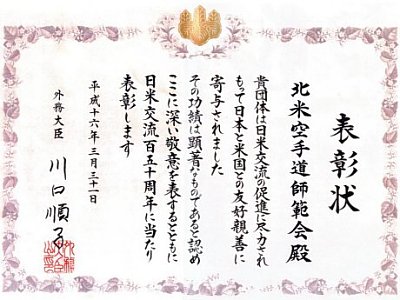 表彰状
北米空手道師範会殿
貴団体は日米交流の促進に尽力され
もって日本と米国との友好親善に
寄与されました
その功績は顕著なものであると認め
ここに深い敬意を表するとともに
日米交流百五十周年に当たり
表彰します
平成十六年三月三十一日
外務大臣
川口順子